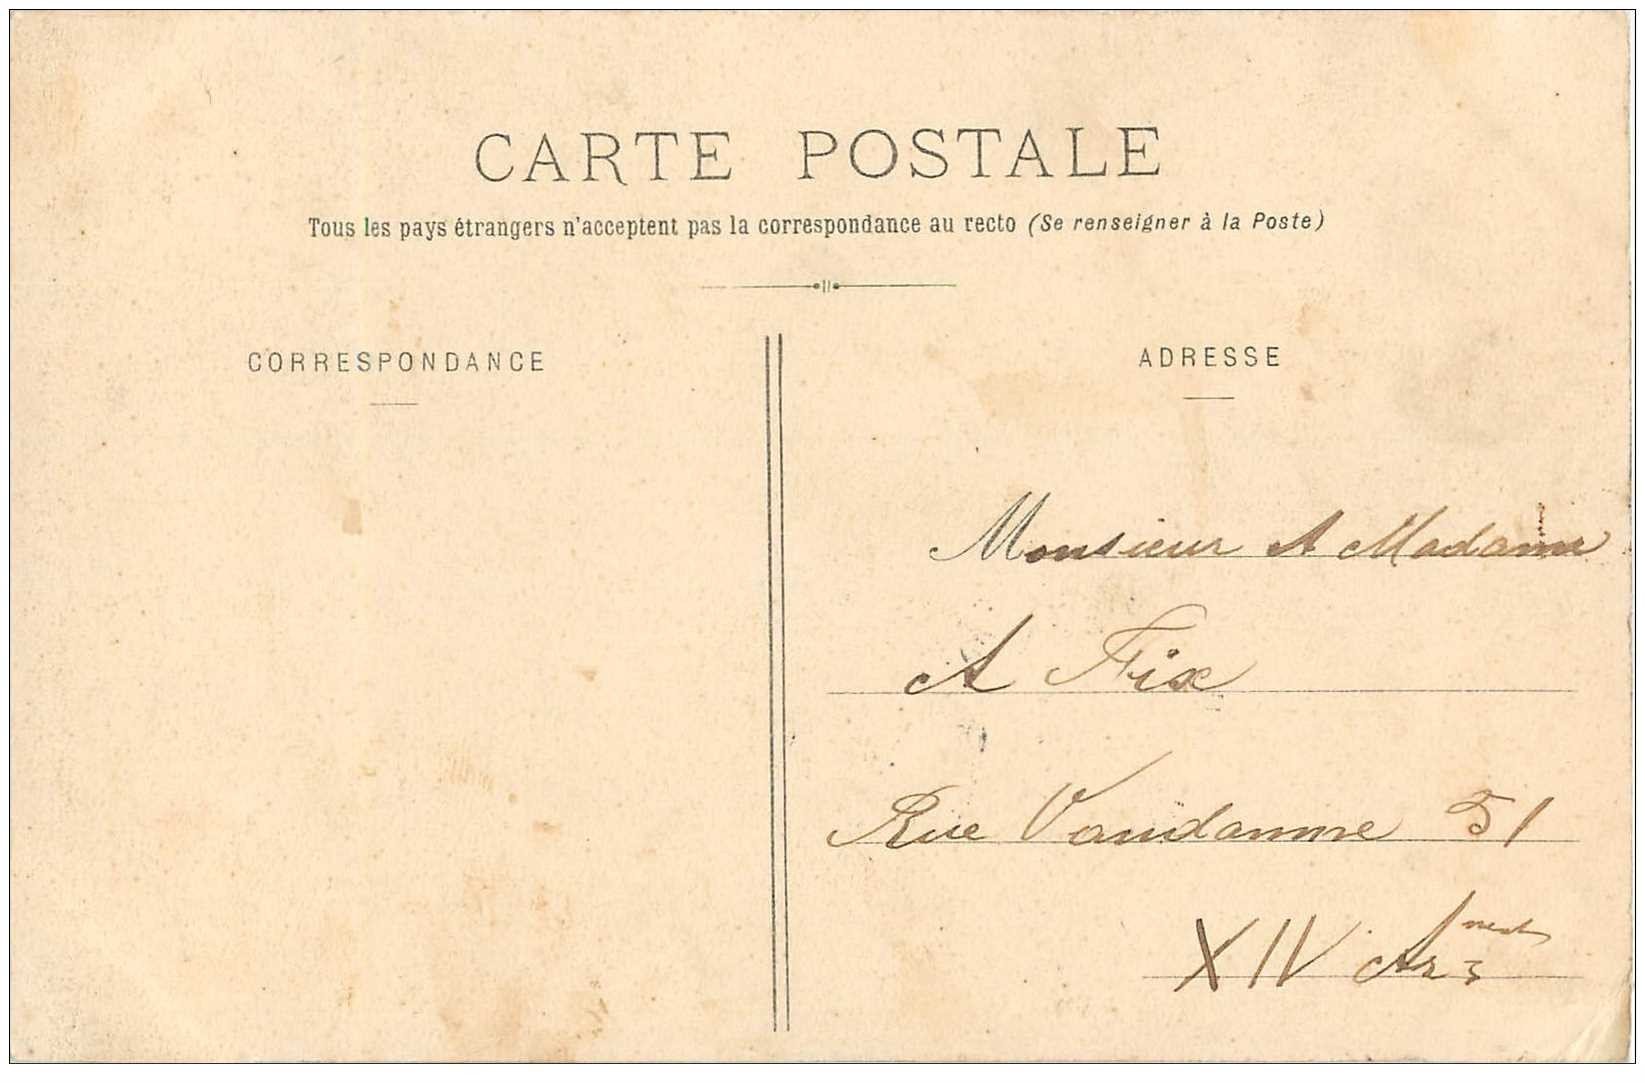 CARTE POSTALE
Tous les pays étrangers n'acceptent pas la correspondance au recto (Se renseigner à la Poste)
CORRESPONDANCE
ADRESSE
Monsieur et Madame
A Fix
Rue Vandamme 51
XIV